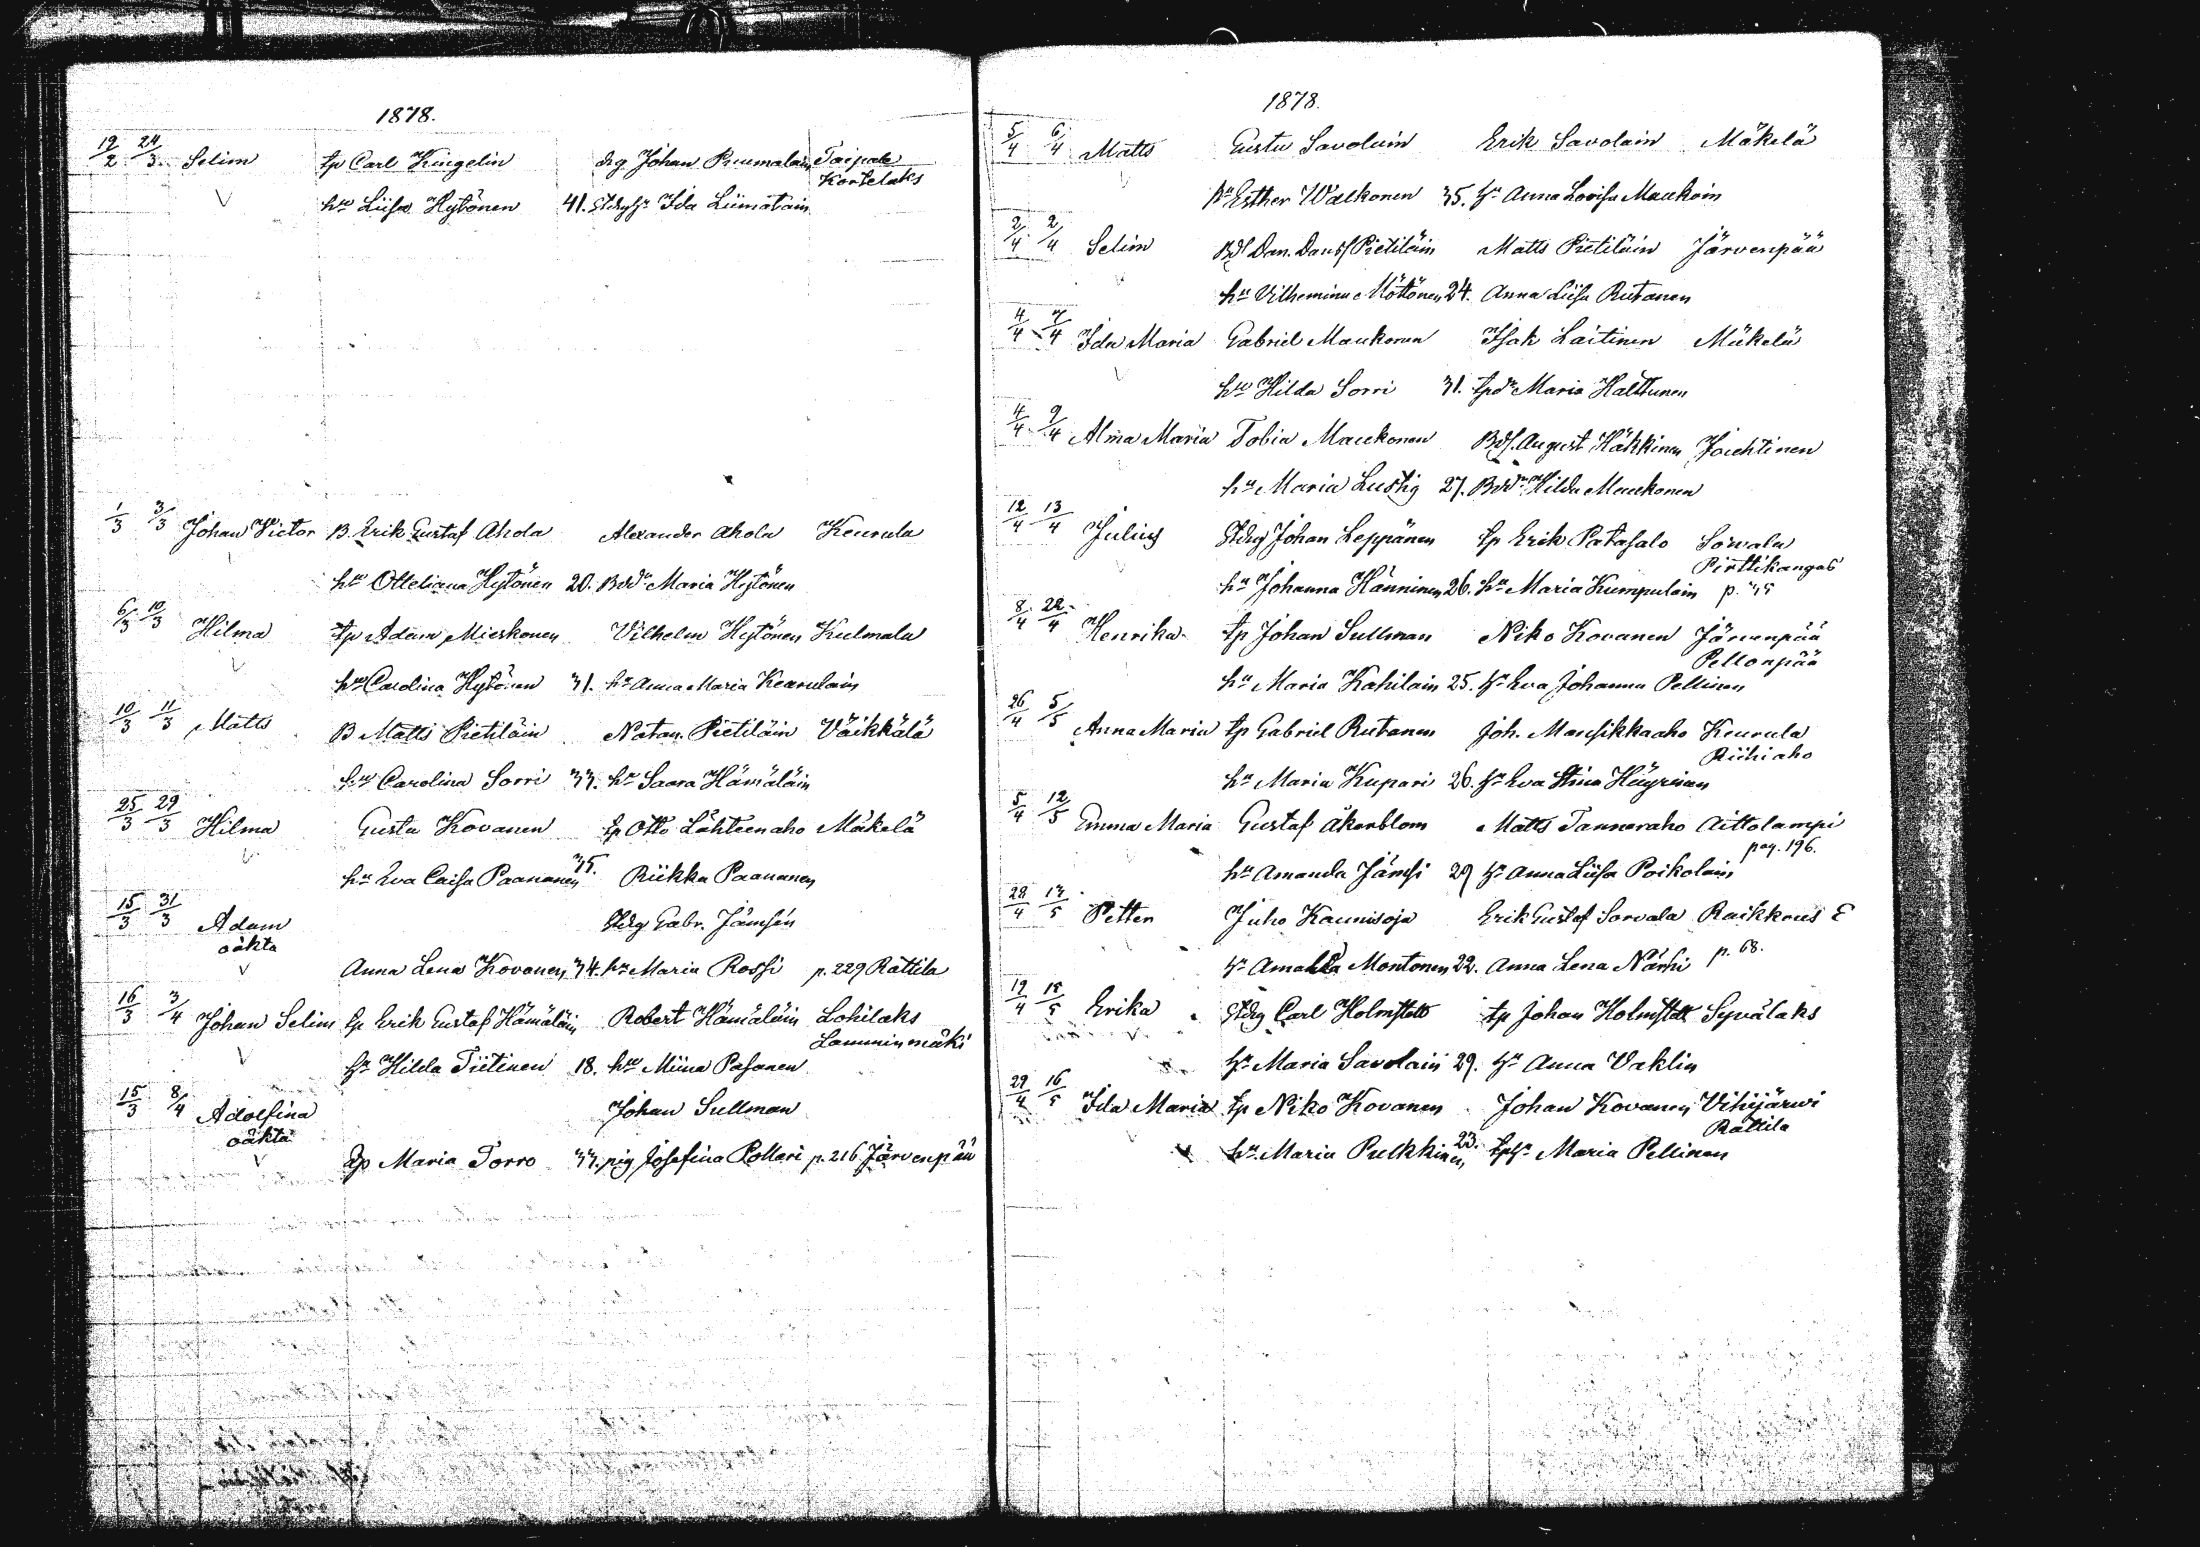 1878.
19/2 24/3 Selim tp Carl Kingelin drg Johan Ruumalain Taipale
Kortelaks
hu Liisa Hytönen 41. Stdrghu Ida Liimatain
1/3 3/3 Johan Victor B. Erik Gustaf Ahola Alexander Ahola Keurula
hu Otteliana Hytönen 20. Bdd Maria Hytönen
6/3 10/3 Hilma tp Adam Mieskonen Vilhelm Hytönen Kulmala
hu Carolina Hytönen 31. hu Anna Maria Keurulain
10/3 11/3 Matts B Matts Pietiläin Natan. Pietiläin Väikkälä
hu Carolina Sorri 33. hu Saara Hämäläin
25/3 29/3 Hilma Gusta Kovanen tp Otto Lähteenaho Mäkelä
hu Eva Caisa Paananen 35. Riikka Paananen
15/3 31/3 Adam Stdrg Gabr. Jämsén
oäkta
Anna Lena Kovanen 34. hu Maria Rossi p. 229 Rattila
16/3 3/4 Johan Selim tp Erik Gustaf Hämäläin Robert Hämäläin Lohilaks
Lamminmäki
hu Hilda Tiitinen 18. hu Miina Pasanen
15/3 8/4 Adolfina Johan Sullman
oäkta
Maria Torro 33. pig Josefina Pollari p. 216 Järvenpää
1878.
5/4 6/4 Matts Gusta Savolain Erik Savolain Mäkelä
hu Esther Walkonen 35. hu Anna Lovisa Maukoin
2/4 2/4 Selim Bds Dan. Danss Pietiläin Matts Pietiläin Järvenpää
hu Vilhemina Möttönen 24. Anna Liisa Rutanen
4/4 7/4 Ida Maria Gabriel Maukonen Isak Laitinen Mäkelä
hu Hilda Sorri 31. tpdr Maria Halttunen
4/4 9/4 Alma Maria Tobia Maukonen Bds. August Häkkinen Jouhtinen
hu Maria Lustig 27. Bddr Hilda Maukonen
12/4 13/4 Julius Stdrg Johan Leppänen tp Erik Patasalo Sowala
Pirttikangas
hu Johanna Hänninen 26. hu Maria Kumpulain p.
8/4 22/4 Henrika tp Johan Sullman Niko Kovanen Järvenpää
Pellonpää
hu Maria Kahilain 25. hu Eva Johanna Pellinen
26/4 5/5 Anna Maria tp Gabriel Rutanen Joh. Mansikkaaho Keurula
Riihiaho
hu Maria Kupari 26. hu Eva Stina Häyrinen
5/4 12/5 Emma Maria Gustaf Åkerblom Matts Tanneraho Aittolampi
pag. 196.
hu Amanda Jämsi 29 hu Anna Liisa Poikolain
28/4 13/5 Petter Juho Kaunisoja Erik Gustaf Sorvala Raikkous E
hu Amanda Montonen 22. Anna Lena Närhi p. 68.
19/4 15/5 Erika Stdrg Carl Holmstett tp Johan Holmstett Syvälaks
hu Maria Savolain 29. hu Anna Vaklin
29/4 16/5 Ida Maria tp Niko Kovanen Johan Kovanen Vihijärwi
Rattila
hu Maria Pulkkinen 23. tphu Maria Pellinen